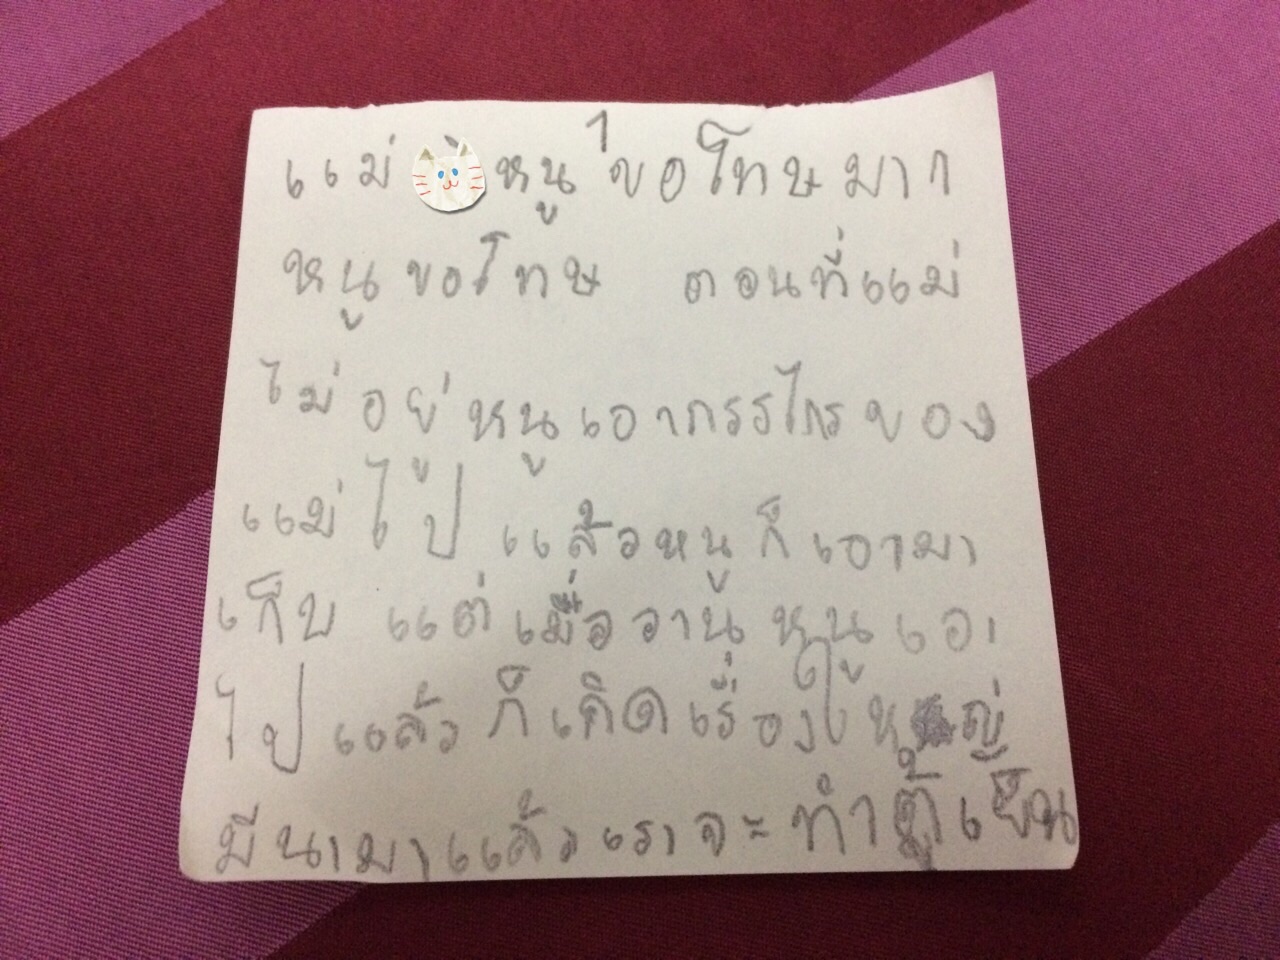 แม่ หนู ขอโทษมาก 1
หนูขอโทษ ตอนที่แม่
ไม่อยู่หนูเอากรรไกรของ
แม่ไป แล้วหนูก็เอามา
เก็บ แต่เมื่อวานนุ หนูเอา
ไปแล้วก็เกิดเรื่องใหญ่
มีนามาแล้วเราจะทำตู้เย็น